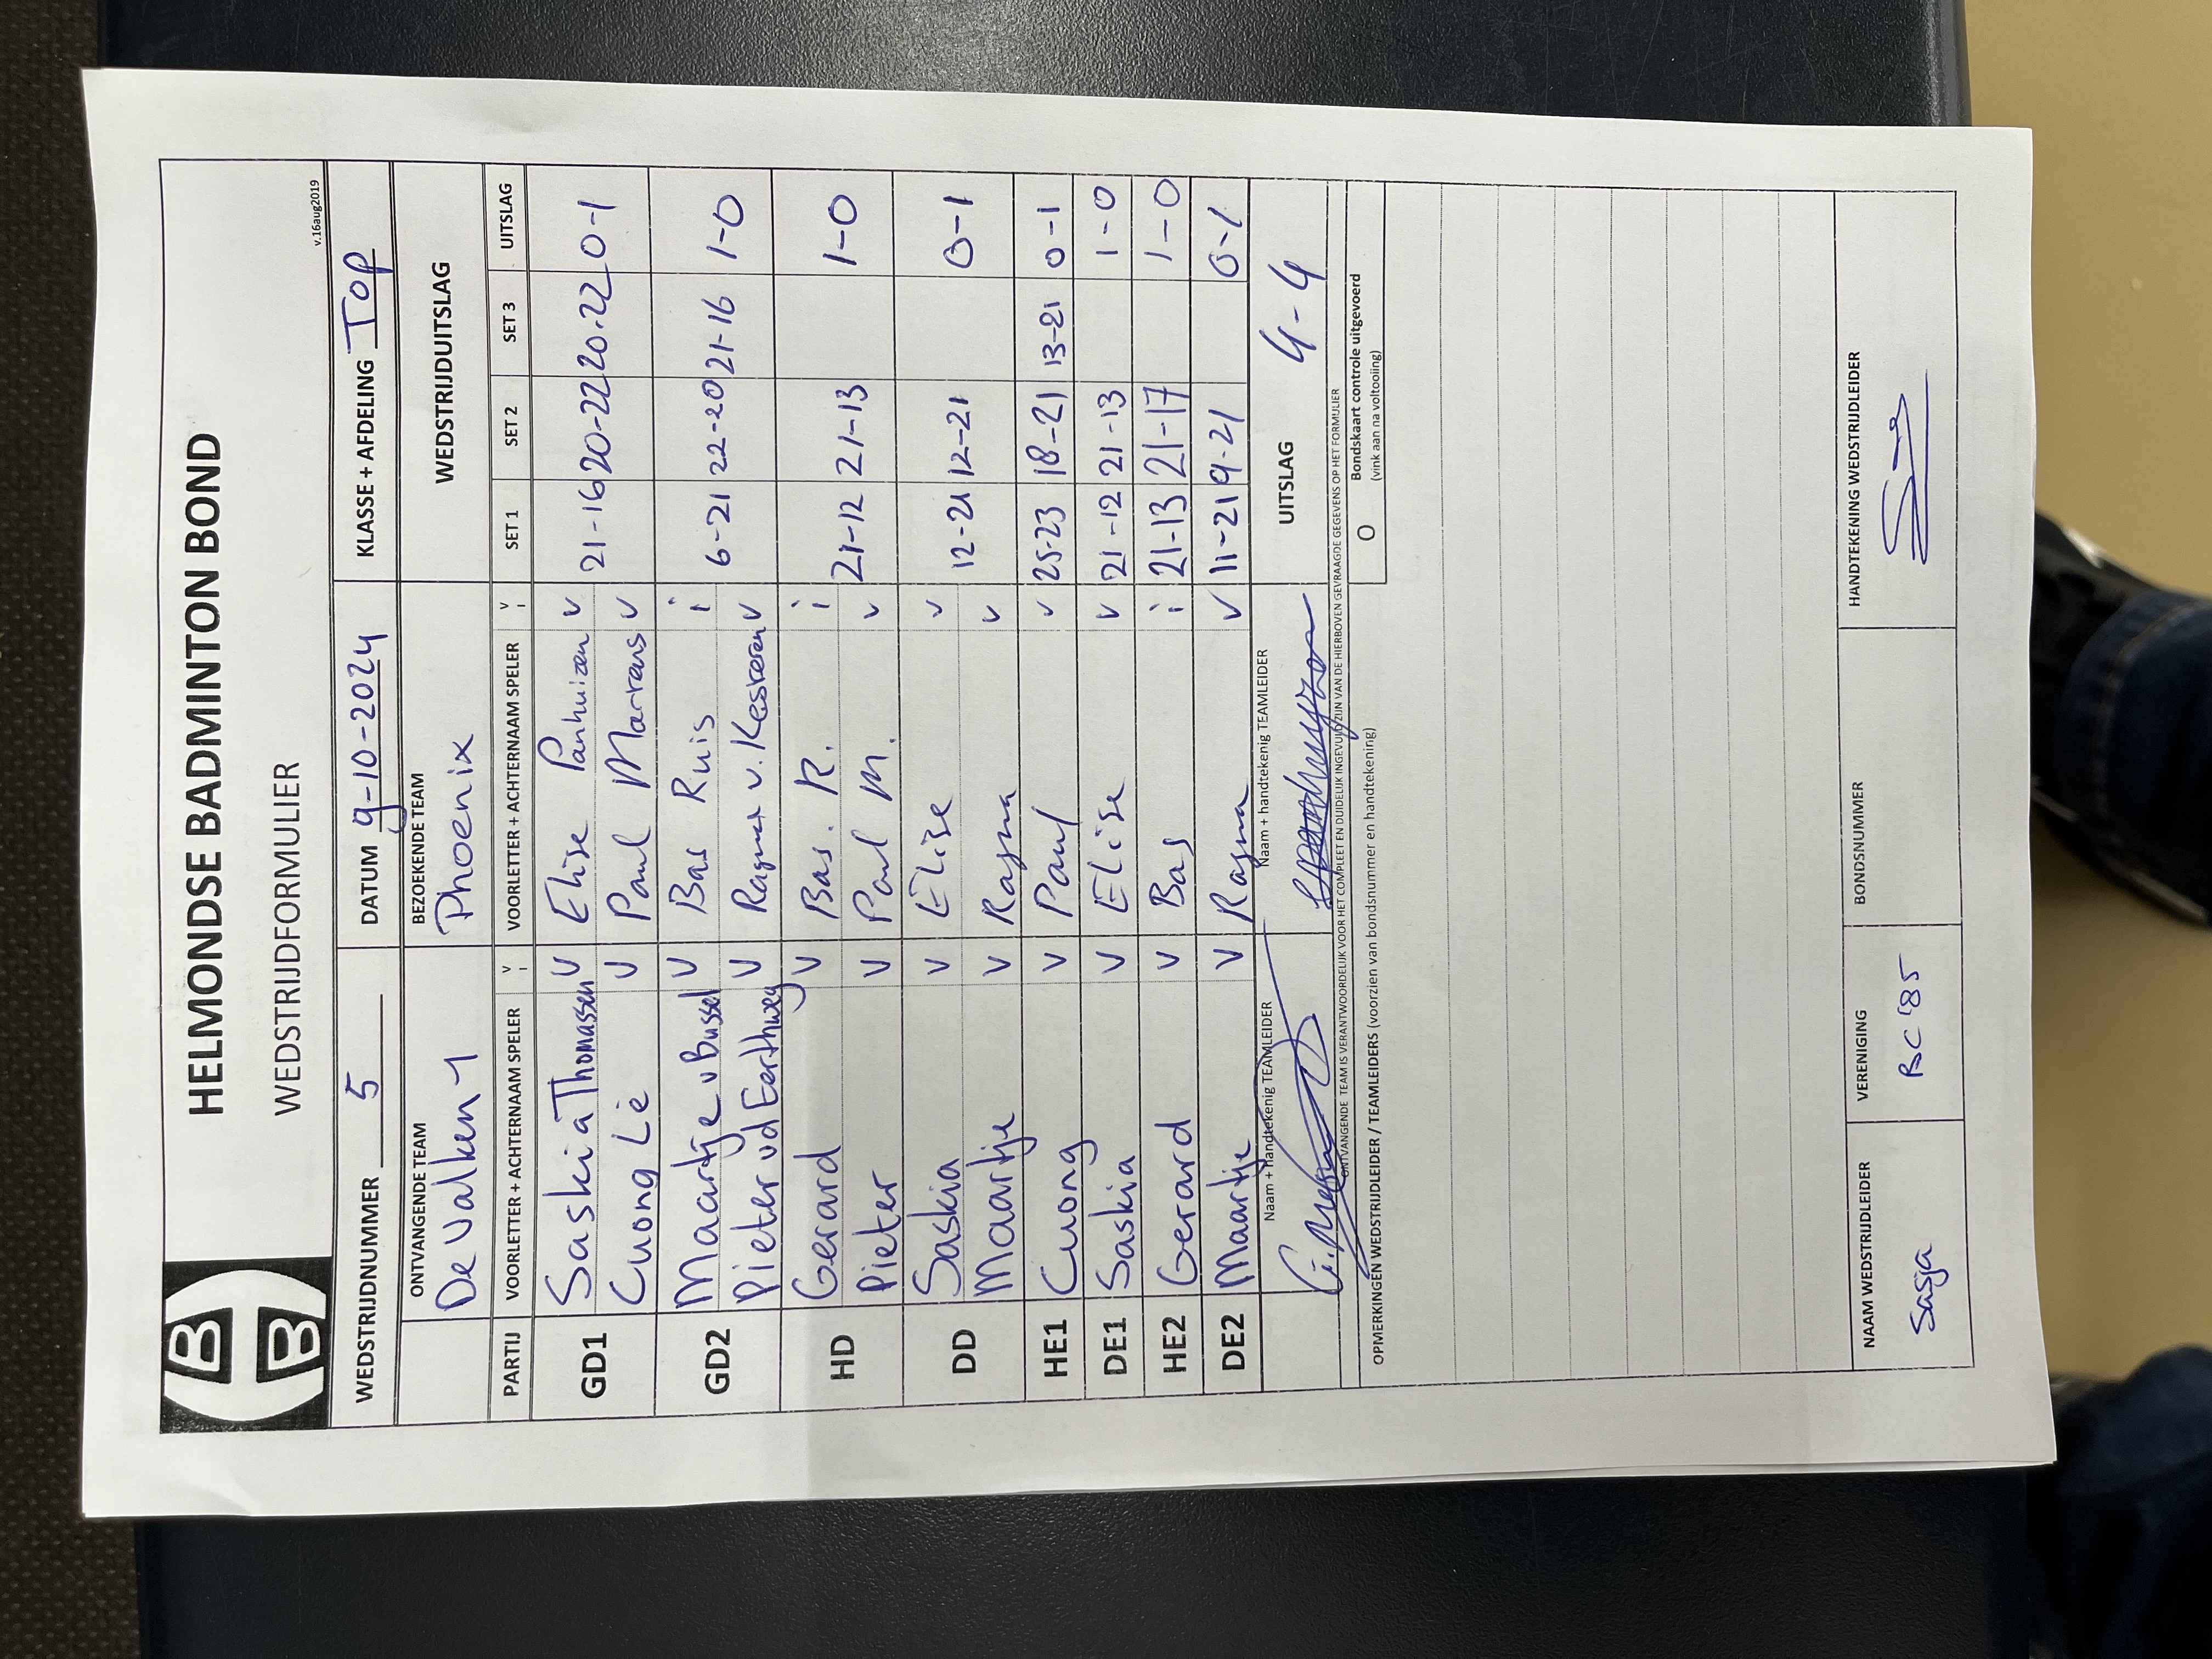 HELMONDSE BADMINTON BOND
WEDSTRIJDFORMULIER
v.16aug2019
WEDSTRIJDNUMMER 5 DATUM 9-10-2024 KLASSE + AFDELING Top
ONTVANGENDE TEAM BEZOEKENDE TEAM WEDSTRIJDUITSLAG
De Valken 1 Phoenix
PARTIJ VOORLETTER + ACHTERNAAM SPELER V I VOORLETTER + ACHTERNAAM SPELER V I SET 1 SET 2 SET 3 UITSLAG
GD1 Saskia Thomassen V Elise Panhuizen V 21-16 20-22 20.22 0-1
Cuong Lè V Paul Martens V
GD2 Maartje v Bussel V Bas Ruis i 6-21 22-20 21-16 1-0
Pieter vd Eerthweg V Ragna v. Kesteren V
HD Gerard V Bas. R. i 21-12 21-13 1-0
Pieter V Paul M. V
DD Saskia V Elise V 12-21 12-21 0-1
Maartje V Ragna V
HE1 Cuong V Paul V 25-23 18-21 13-21 0-1
DE1 Saskia V Elise V 21-12 21-13 1-0
HE2 Gerard V Bas i 21-13 21-17 1-0
DE2 Maartje V Ragna V 11-21 9-21 0-1
Naam + handtekenig TEAMLEIDER Naam + handtekenig TEAMLEIDER UITSLAG 4-4
ONTVANGENDE TEAM IS VERANTWOORDELIJK VOOR HET COMPLEET EN DUIDELIJK INGEVULD ZIJN VAN DE HIERBOVEN GEVRAAGDE GEGEVENS OP HET FORMULIER
OPMERKINGEN WEDSTRIJDLEIDER / TEAMLEIDERS (voorzien van bondsnummer en handtekening)
O Bondskaart controle uitgevoerd
(vink aan na voltooiing)
NAAM WEDSTRIJDLEIDER VERENIGING BONDSNUMMER HANDTEKENING WEDSTRIJDLEIDER
Sasja BC '85